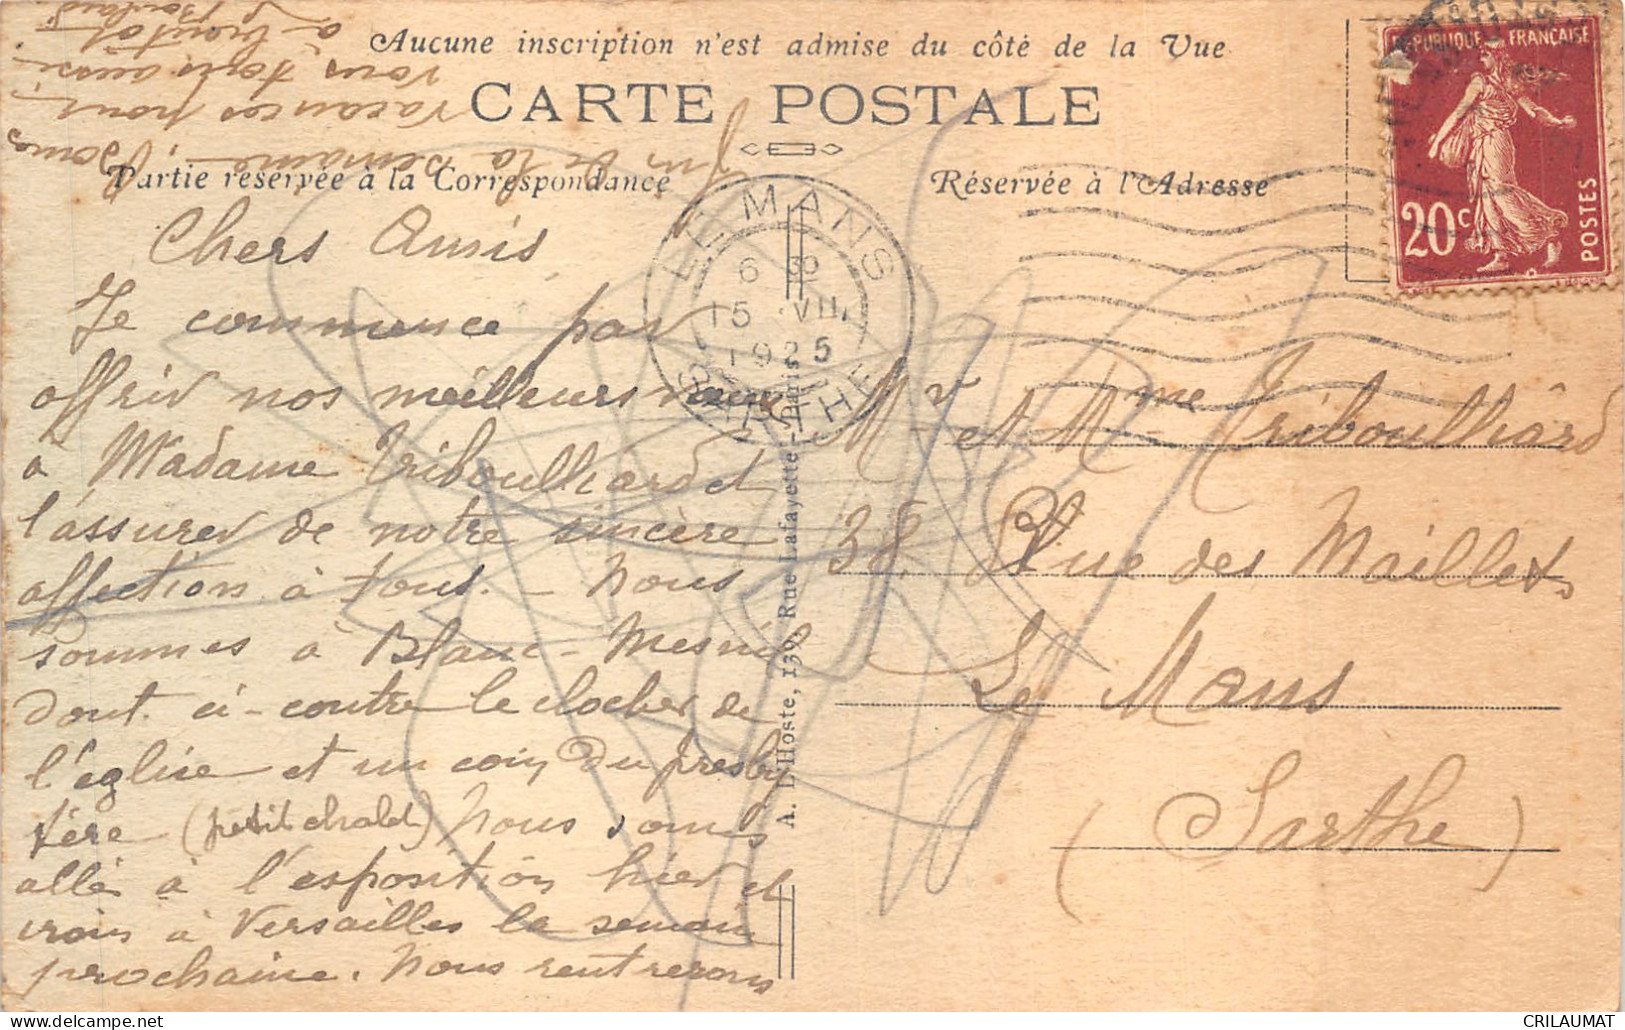 Aucune inscription n'est admise du côté de la Vue
CARTE POSTALE
Partie réservée à la Correspondance
Réservée à l'Adresse
REPUBLIQUE FRANÇAISE
20c
POSTES
LE MANS
6 30
15 VII
1925
SARTHE
Chers Amis
Je commence par
offrir nos meilleurs vœux
à Madame Triboulhard et
l'assurer de notre sincère
affection à tous. - Nous
sommes à Blanc-Mesnil
dont ci-contre le clocher de
l'église et un coin du presby
tère (petit chalet) Nous somes
allé à l'esposition hier et
irons à Versailles la semaine
prochaine. Nous rentrerons
fin de la semaine. Bonnes
vacances pour
vous tous aussi
à bientôt
A. L'Hoste, 139, Rue Lafayette - Paris
Mr et Mme Triboulhard
38 Rue des Maillets
Le Mans
(Sarthe)
CRILAUMAT